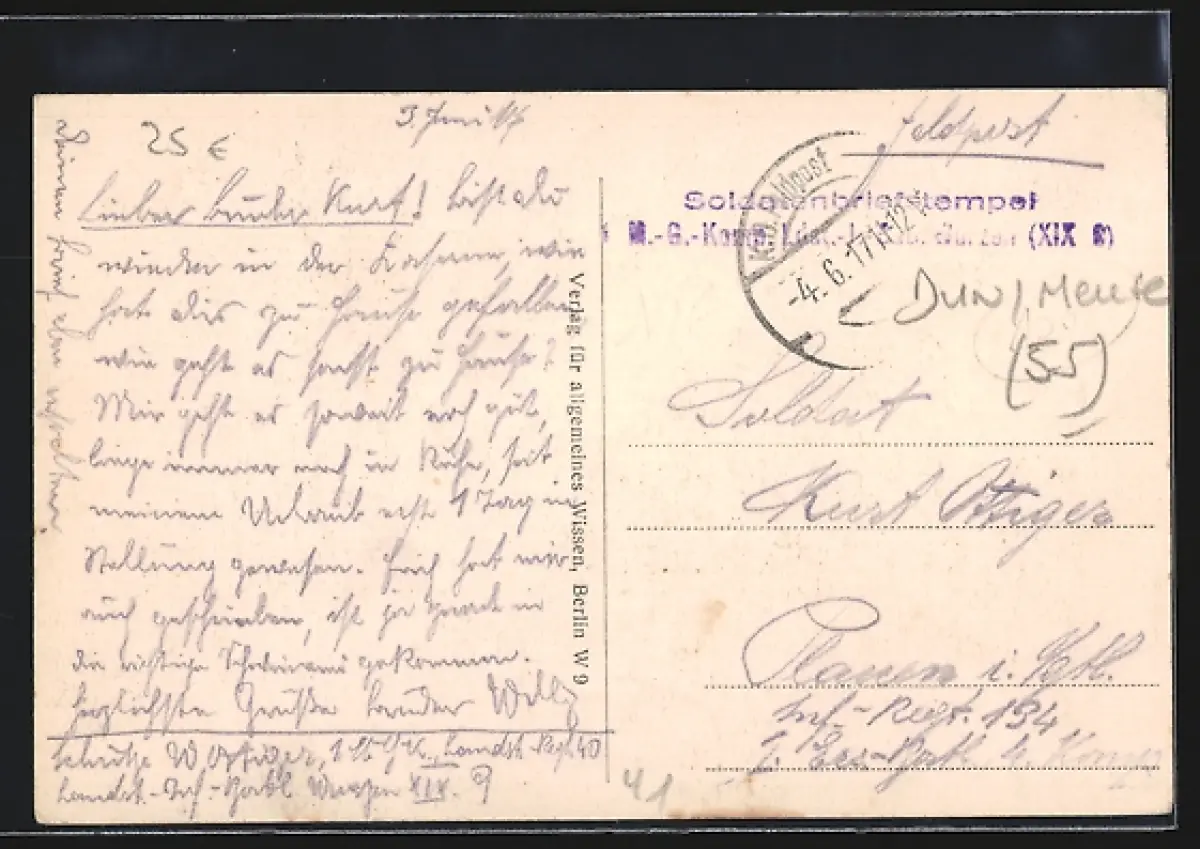 25 €
3. Juni 17
Lieber Bruder Kurt! Bist du
wieder in der Kaserne, wie
hat dirs zu Hause gefallen
wie geht es sonst zu Hause?
Mir geht es soweit noch gut,
liege immer noch in Ruhe, seit
meinem Urlaub erst 1 Tag in
Stellung gewesen. Erich hat mir
auch geschrieben, ist ja grad in
die richtige gekommen.
herzlichste Grüße Bruder Willy
Schütze W Ottiger, Landst.
Landst.-Inf.-Batl Wurzen XIX. 9
Deinen Brief eben erhalten
Verlag für allgemeines Wissen, Berlin W 9
Feldpost
Soldatenbriefstempel
M.-G.-Komp. (XIX 9)
K.D. Feldpost
-4. 6. 17 11-12 V
DUN / MEUSE
(55)
Soldat
Kurt Ottiger
Plauen i. Vgtl.
Inf.-Regt. 134
Ers.-Batl. Komp
41